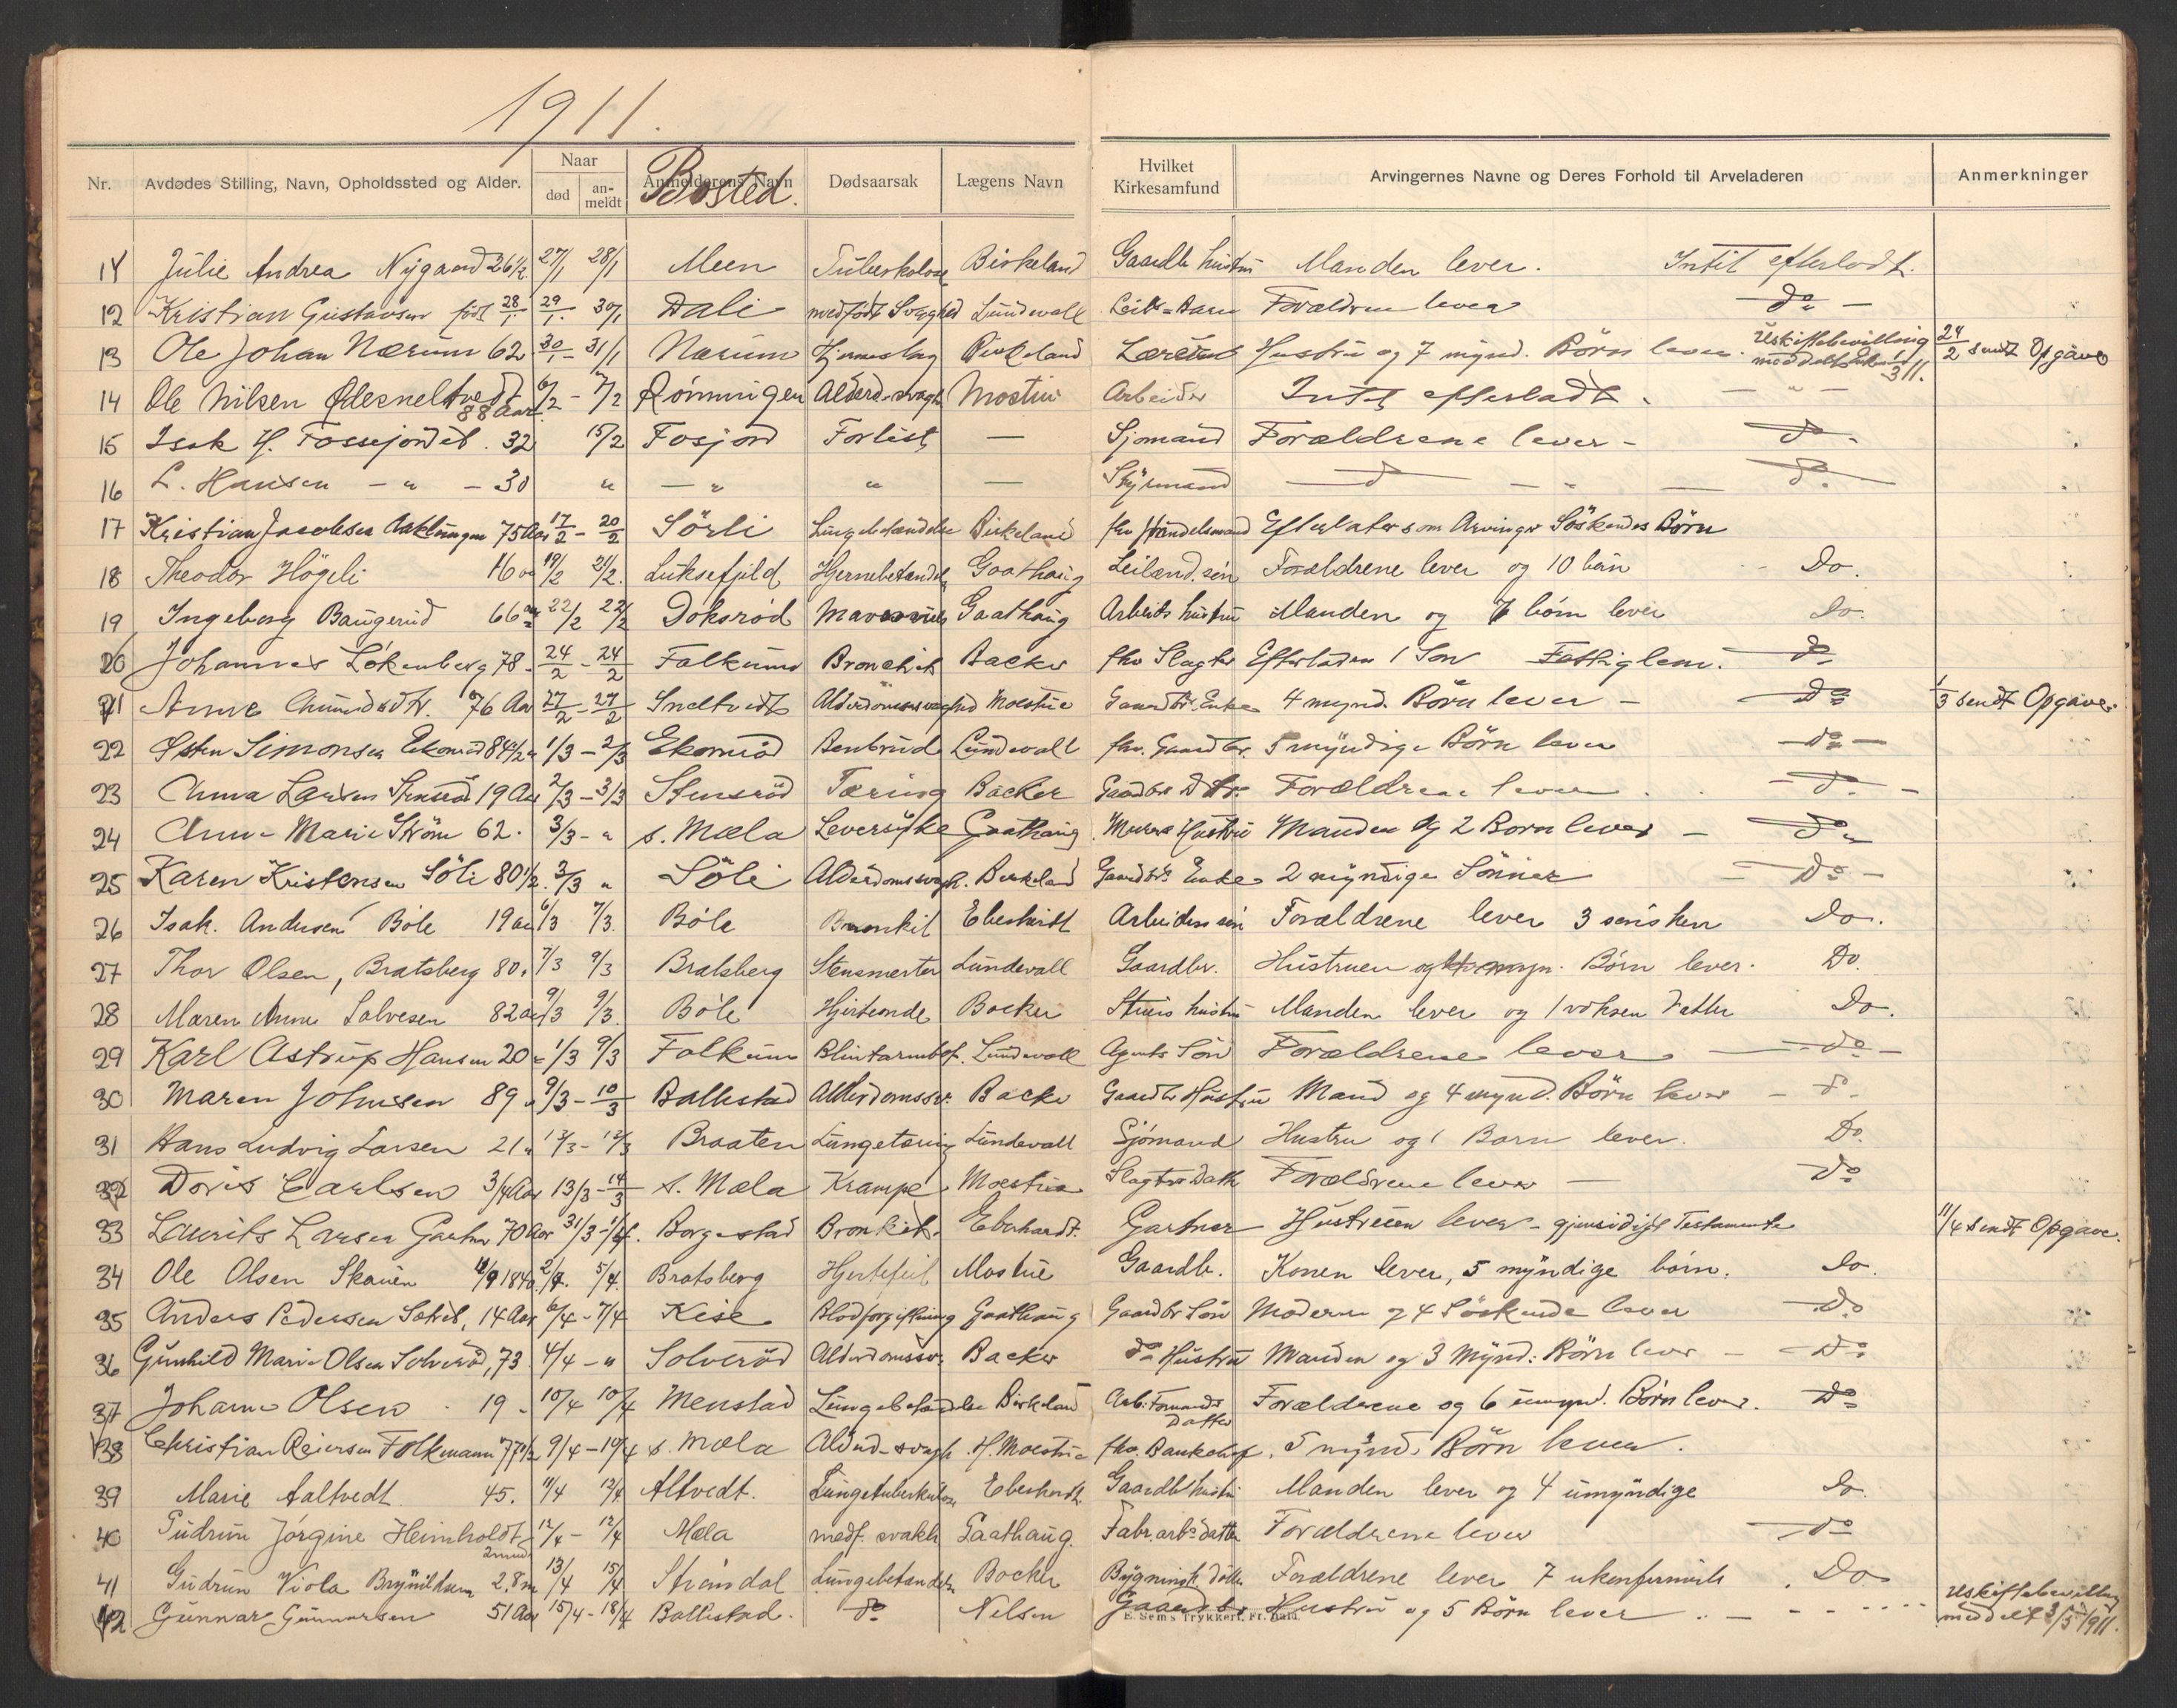 1911.
Nr. Avdødes Stilling, Navn, Opholdssted og Alder. Naar død an-meldt Anmelderens Navn Bosted. Dødsaarsak Lægens Navn Hvilket Kirkesamfund Arvingernes Navne og Deres Forhold til Arveladeren Anmerkninger
11 Julie Andrea Nygaard 26 1/2 27/1 28/1 Meen Tuberkolose Birkeland Gaardb hustru Manden lever. Intet efterladt.
12 Kristian Gustavsen født 28/1 29/1 - 30/1 Dali medfødt Svaghed Lundevall Barn Forældrene lever do -
13 Ole Johan Nærum 62 30/1 - 31/1 Nærum Hjerneslag Birkeland Hustru og 7 mynd. Børn lever. Uskiftebevilling meddelt 1/3 11. 24/2 sendt Opgave
14 Ole Nilsen 88 Aar 6/2 - 7/2 Rønningen Alderd.svagh Mostue Arbeider Intet efterladt. - " -
15 Isak H. Fossejordet. 32 15/2 Fosjord Forlist, — Sjomand Forældrene lever - do
16 L. Hansen - " - 30 " - " " — Styrmand do - " - do
17 Kristian Jacobsen 75 Aar 17/2 - 20/2 Sörli Lungebetændelse Birkeland fhv Handelsmand Efterlater som Arvinger Söskendes Børn
18 Theodor Högeli 16 aar 19/2 21/2. Luksefjeld Hjernebetændels Gaathaug Leilænd. søn Forældrene lever og 10 barn Do.
19 Ingeborg Baugerud 66 aar 22/2 22/2 Doksrød Gaathaug Arbeids hustru Manden og 7 børn lever Do.
20 Johannes Løkenberg 78 - 24/2 - 24/2 Falkum Bronchit Backer fhv Slagter Efterladen 1 Søn Fattiglem. do
21 Anne Amundsdtr. 76 Aar 27/2 - 27/2 Sneltvedt Alderdomssvaghed Moestue Gaardbr. Enke 4 mynd. Børn lever - Do 1/3 sendt Opgave.
22 Østen Simonsen Ekornrød 84 1/2 1/3 - 2/3 Ekornrød Benbrud Lundevall fhv. Gaardbr. 5 myndige Børn lever - do -
23 Anna Larsen Stensrød 19 Aar 2/3 - 3/3 Stensrød Tæring Backer Gaardbr Dtr. Forældrene lever. do -
24 Anne Marie Strøm 62. 3/3 - " s. Mæla Leversyke Gaathaug Murer Hustru Manden og 2 Born lever - do
25 Karen Kristensen Söli 80 1/2. 3/3 " Söli Alderdomssvagh. Birkeland Gaardbrs Enke 2 myndige Sönner - Do -
26 Isak. Andersen Böle 19 aar 6/3 7/3. Böle Bronkit Eberhardt Arbeiders søn Forældrene lever 3 søsken Do.
27 Thor Olsen, Bratsberg 80. 7/3 9/3 Bratsberg Stensmerter Lundevall Gaardbr. Hustruen og myn. Børn lever. Do.
28 Maren Anne Salvesen 82 aar 9/3 9/3. Böle Hjerteonde Backer hustru Manden lever og 1 voksen datter Do.
29 Karl Astrup Hansen 20 " 1/3 9/3 Falkum Blintarmbet. Lundevall Agents Søn Forældrene lever - do -
30 Maren Johnsen 89 " 9/3 - 10/3 Ballestad Alderdomssv. Backe Gaardbr Hustru Mand og 4 mynd. Børn lever - do -
31 Hans Ludvig Larsen 21 " 12/3 - 13/3 Braaten Lungetæring Lundevall Sjømand Hustru og 1 Barn lever. Do.
32 Doris Carlsen 3/4 Aar 13/3 - 14/3 s. Mæla Krampe Moestue Slagters Datt Forældrene lever - Do
33 Laurits Larsen Gartner 70 Aar 31/3 - 1/4. Borgestad Bronkit. Eberhardt. Gartner Hustruen lever - gjensidigt Testamente 11/4 sendt Opgave.
34 Ole Olsen Skauen 1840. 2/4. 5/4. Bratsberg Hjertefeil Mostue Gaardb. Konen lever, 5 myndige børn. Do.
35 Anders Pedersen 14 Aar 6/4 - 7/4 Kise Blodforgiftning Gaathaug Gaardbr Søn Moderen og 4 Söskende lever - do
36 Gunhild Marie Olsen Solverød, 73. 4/4 - " Solverød Alderdomssv. Backer do Hustru Manden og 3 Mynd: Børn lever - do
37 Johanne Olsen. 19 - 10/4 10/4 Menstad Lungebetændelse Birkeland Arb: Formands Datter Forældrene og 6 umynd. Børn lever. Do
38 Christian Reiersen Folkmann 77 1/2 9/4 - 10/4 s. Mæla Alderd-svagh. H. Moestue fhv. Bankchef, 5 mynd. Børn lever.
39 Marie Aaltvedt 45. 11/4 12/4 Altvedt. Lungetuberkulose Eberhardt Gaardb hustru Manden lever og 4 umyndige Do
40 Gudrun Jørgine Heimholdt 12/4 - 12/4 Mæla medf. svakh. Gaathaug. Fabr. arb. datter Forældrene lever - do
41 Gudrun Viola 2. 8 m 13/4 15/4 Strømdal Lungebetændelse Backer Forældrene lever 7 ukonfirmerte. Do
42 Gunnar Gunnarsen 51 Aar 15/4 - 18/4 Ballestad. do Nilsen Gaardbr Hustru og 5 Børn lever. Uskiftebevilling meddelt 3/5 1911.
E. Sem's Trykkeri, Fr.hald.